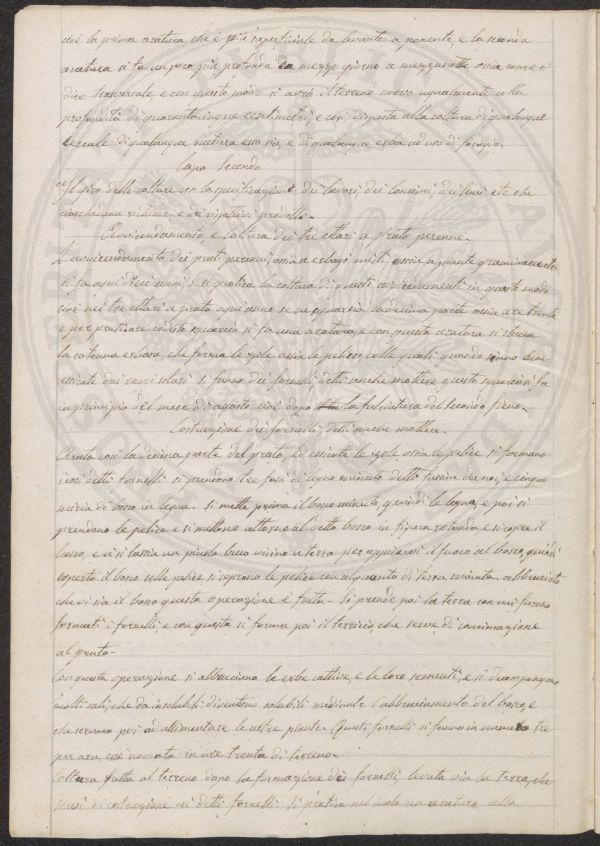 cioè la prima aratura che è più superficiale da levante a ponente, e la seconda
aratura si fa un poco più profonda da mezzogiorno a mezzanotte, ossia come si
dice trasversale, e con questo modo si avrà il terreno mosso ugualmente alla
profondità di quarantacinque centimetri, e così disposto alla coltura di qualunque
cereale di qualunque natura esso sia, e di qualunque erba ad uso di foraggio.
Capo Secondo
Il giro delle colture con la specificazione dei lavori, dei concimi, dei semi etc che
ciascheduna richiede, e dei rispettivi prodotti.
Avvicendamento, e coltura dei tre ettari a prato perenne.
L'avvicendamento dei prati perenni, ossia a erbaggi misti, ossia a piante graminacee
si fa ogni dieci anni, e si pratica la coltura di questi avvicendamenti in questo modo
cioè nei tre ettari a prato ogni anno se ne squarcia la decima parte ossia are trenta
e per praticare codesto squarcio si fa una aratura, e con questa aratura si stacca
la cotenna erbosa che forma le zolle ossia le pelicce, colle quali quando sono bene
essicate dai raggi solari si fanno dei fornelli detti anche mottere questo squarcio si fa
in principio del mese di agosto cioè dopo la falciatura del secondo fieno.
Costruzione dei fornelli, detti anche mottere.
Arata così la decima parte del prato, ed essicate le zolle ossia le pelice si formano
i così detti fornelli si prendono tre fasci di legno minuto detti fascine da noi, e cinque
miria di bosco in legna. si mette prima il bosco minuto, e quindi la legna, e poi si
prendono le pelice e si mettono attorno al detto bosco in figura rotonda, e si copre il
bosco, e vi si lascia un piccolo buco vicino a terra per appiccarvi il fuoco al bosco, quindi
coperto il bosco colle pelice si coprono le pelice con alquanto di terra minuta. abbruciato
che vi sia il bosco questa operazione è fatta. Si prende poi la terra con cui furono
formati i fornelli, e con questa si forma poi il terriccio, che serve di concimazione
al prato.
Con questa operazione si abbruciano le erbe cattive, e le loro sementi, e si decompongono
molti sali, che da insolubili diventano solubili mediante l'abbruciamento del bosco, e
che servono poi ad alimentare le altre piante. Questi fornelli si fanno in numero tre
per ara, così novanta in are trenta di terreno.
Coltura fatta al terreno dopo la formazione dei fornelli, levata via la terra, che
servì di costruzione ai detti fornelli. Si pratica nel suolo un aratura colla